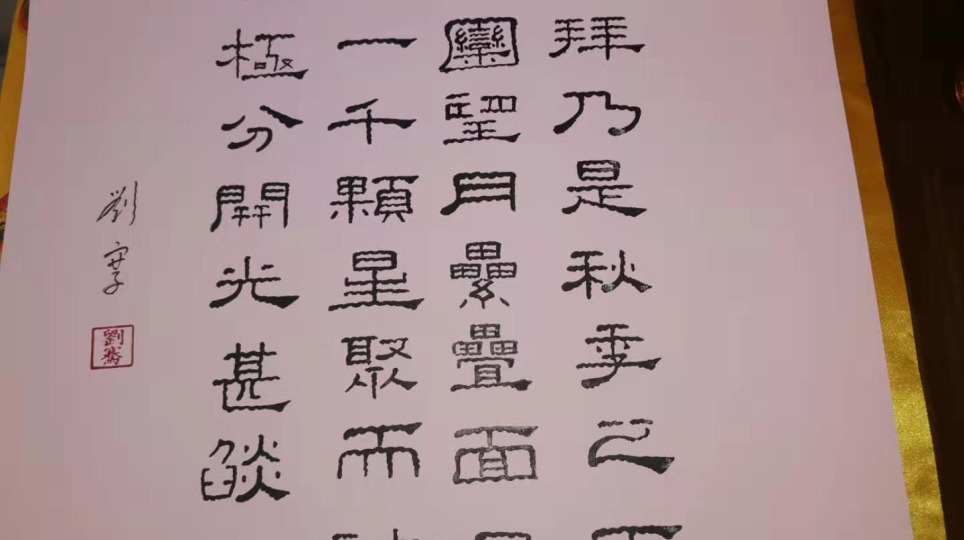 拜乃是秋季之
圞望月纍疊面
一千顆星聚而
極分開光甚燄
劉
劉